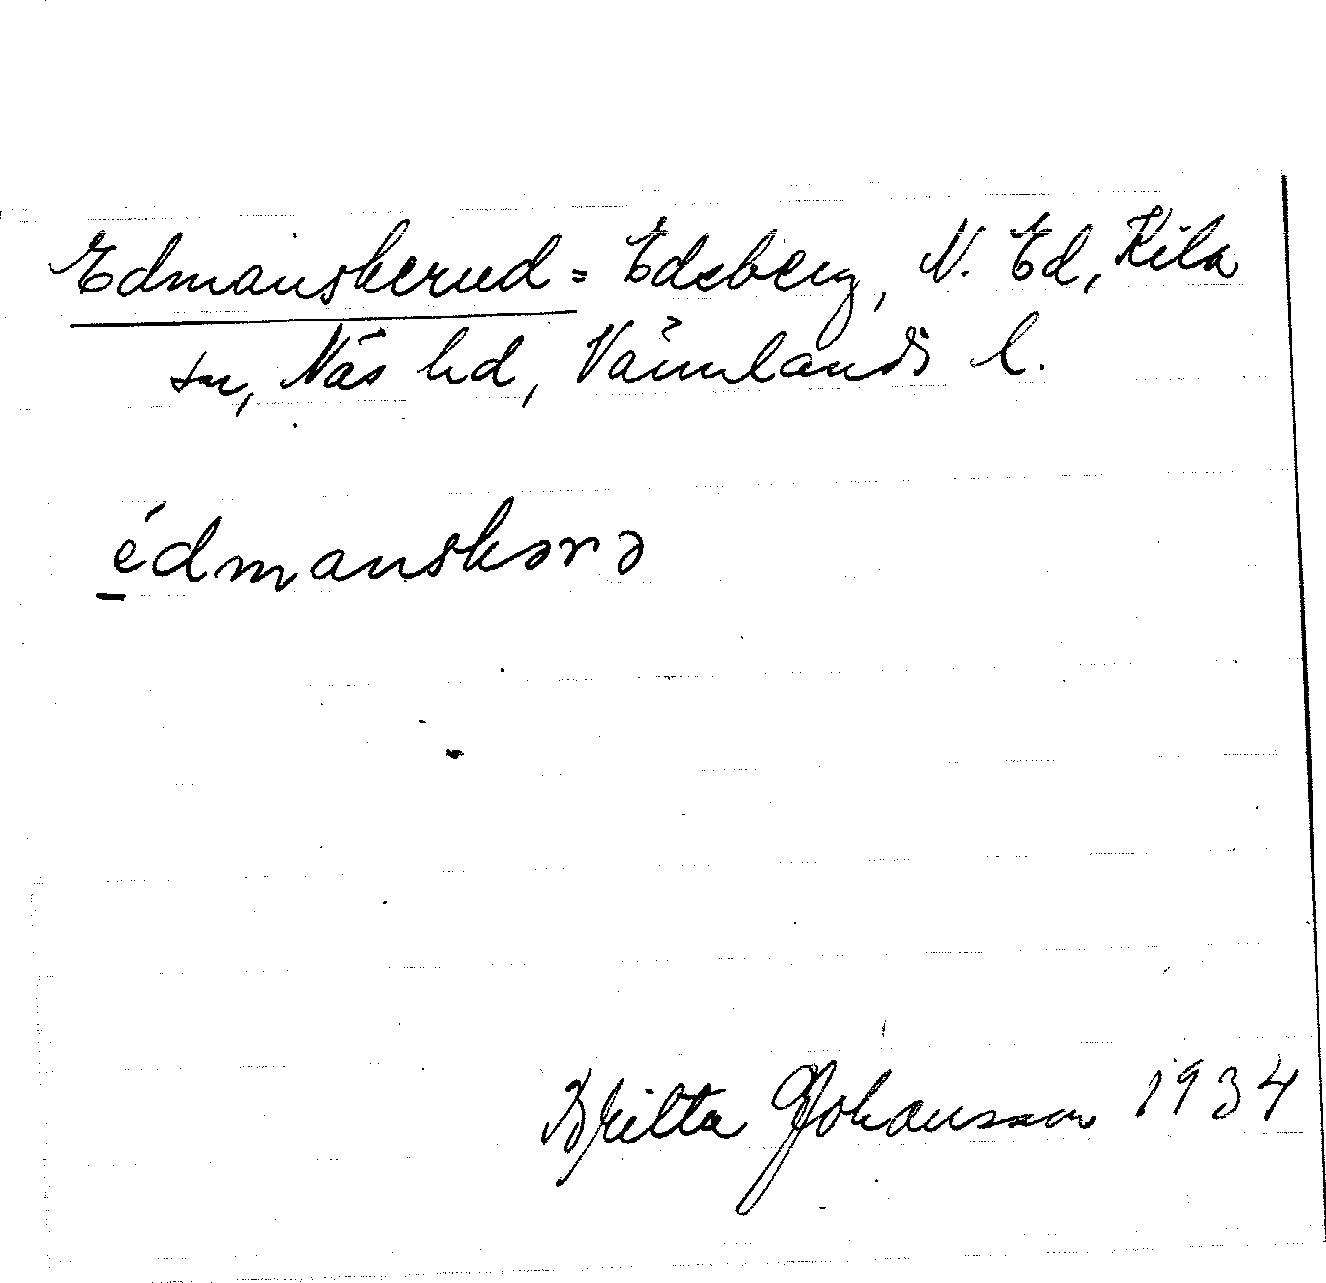 Edmanskerud = Edsberg, N. Ed, Kila
sn, Näs hd, Värmlands l.
édmanskərə
Britta Johansson 1934